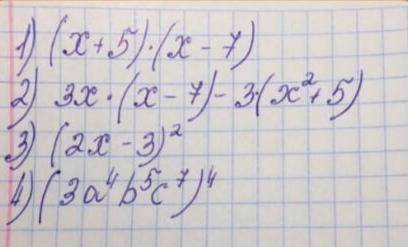 1) (x+5)·(x-7)
2) 3x·(x-7)-3·(x²+5)
3) (2x-3)²
4) (3a⁴b⁵c⁷)⁴